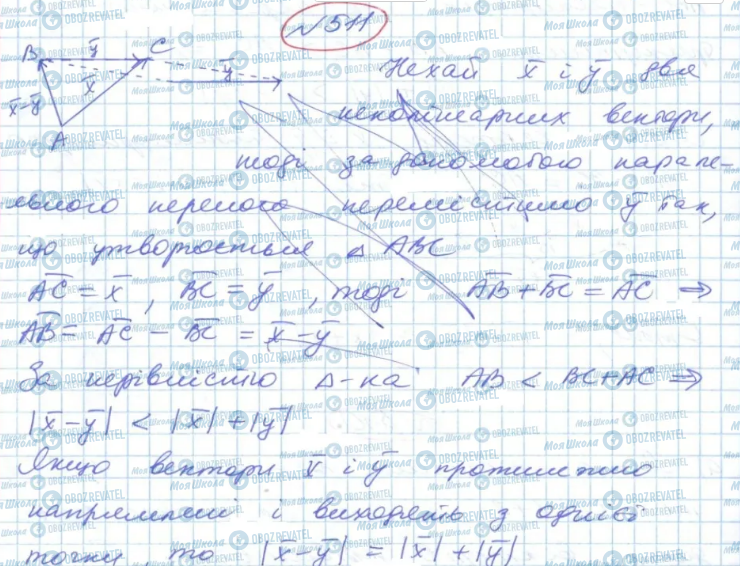 №511
B ȳ C
x̄ ȳ
x̄-ȳ
A
Нехай x̄ і ȳ два
неколінарних вектори,
тоді за допомогою парале-
льного переносу перемістимо ȳ так,
що утворюється △ ABC
A̅C̅ = x̄ , B̅C̅ = ȳ , тоді A̅B̅ + B̅C̅ = A̅C̅ ⇒
A̅B̅ = A̅C̅ - B̅C̅ = x̄-ȳ
За нерівністю △-ка AB < BC+AC ⇒
|x̄-ȳ| < |x̄|+|ȳ|
Якщо вектори x̄ і ȳ протилежно
напрямлені і виходять з однієї
точки, то |x̄-ȳ| = |x̄|+|ȳ|
Моя Школа
OBOZREVATEL